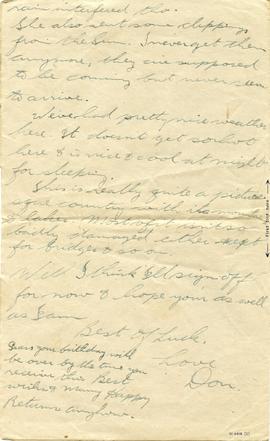 rain interfered tho.
She also sent some clippings
from the Sun. I never get them
anymore, they are supposed
to be coming but never seem
to arrive.
We've had pretty nice weather
here. It doesn't get so hot
here & is nice & cool at night
for sleeping.
This is really quite a pictur-
esque country with its
& lakes. Most of it isn't so
badly damaged either except
for bridges & so on.
Well I think I'll sign off
for now & hope you're as well
as I am
Best of Luck.
Love
Don.
Guess your birthday will
be over by the time you
receive this Best
wishes & Many Happy
Returns anyhow.